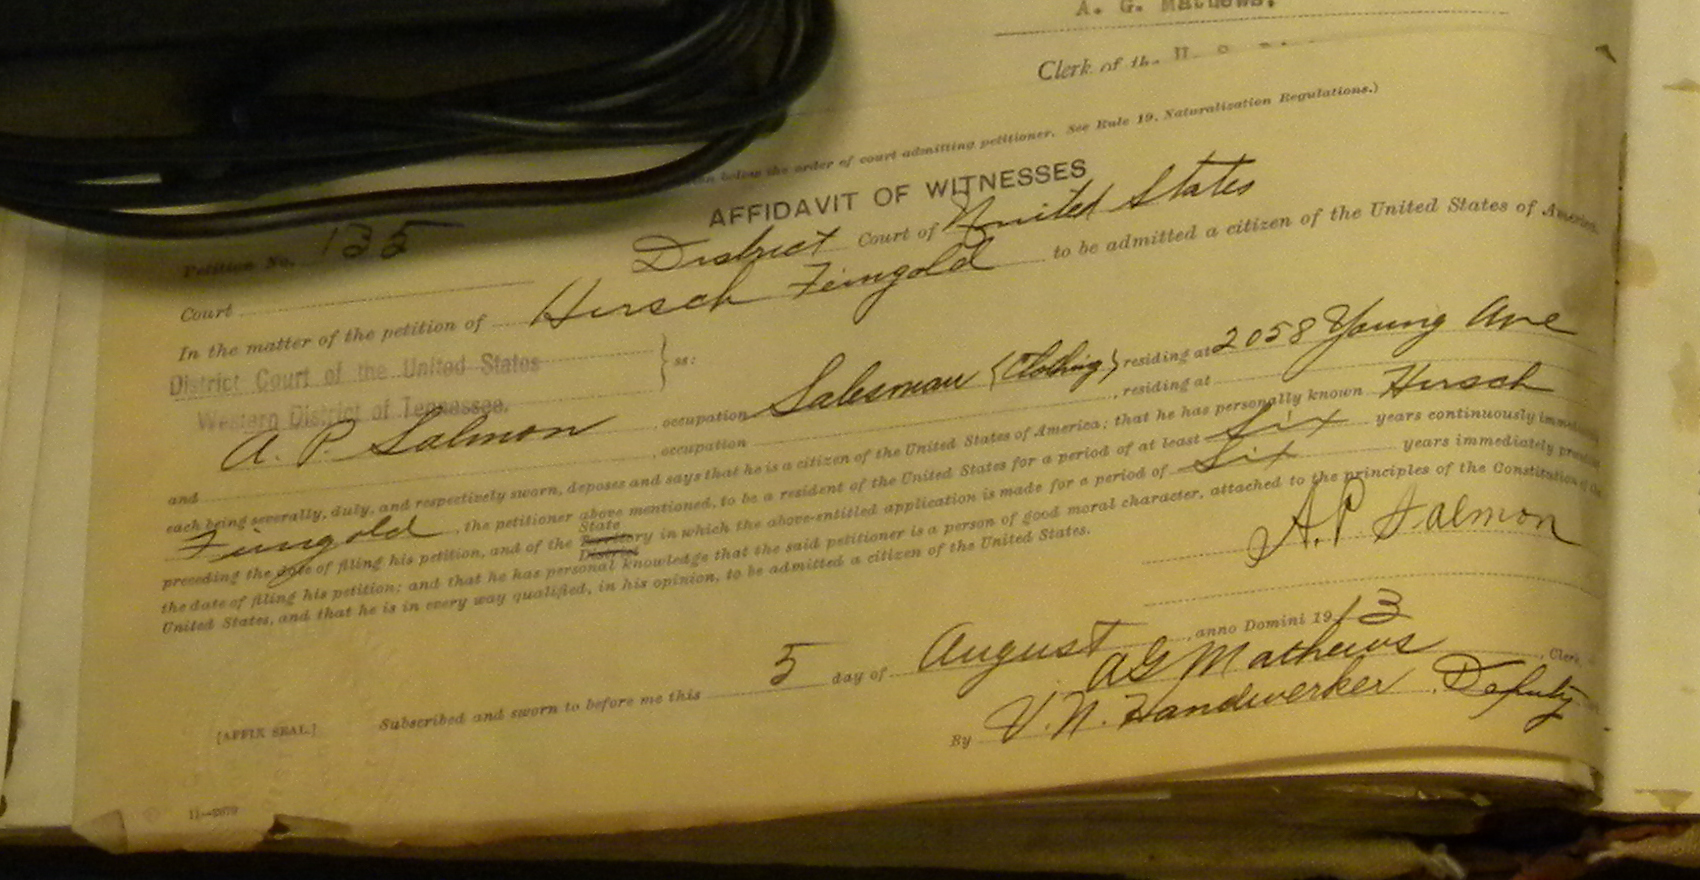 A. G. Mathews.
Clerk of the U. S.
below the order of court admitting petitioner. See Rule 19, Naturalization Regulations.)
AFFIDAVIT OF WITNESSES
Petition No. 135
District Court of United States
Court
In the matter of the petition of Hirsch Feingold to be admitted a citizen of the United States of America.
District Court of the United States
Western District of Tennessee. } ss:
A. P. Salmon, occupation Salesman (Clothing), residing at 2058 Young Ave
and , occupation , residing at
each being severally, duly, and respectively sworn, deposes and says that he is a citizen of the United States of America; that he has personally known Hirsch
Feingold, the petitioner above mentioned, to be a resident of the United States for a period of at least six years continuously
preceding the date of filing his petition, and of the State Territory District in which the above-entitled application is made for a period of six years immediately
the date of filing his petition; and that he has personal knowledge that the said petitioner is a person of good moral character, attached to the principles of the Constitution of the
United States, and that he is in every way qualified, in his opinion, to be admitted a citizen of the United States.
A.P. Salmon
Subscribed and sworn to before me this 5 day of August, anno Domini 1913
[AFFIX SEAL.]
AG Mathews, Clerk
By V. N. Handwerker Deputy